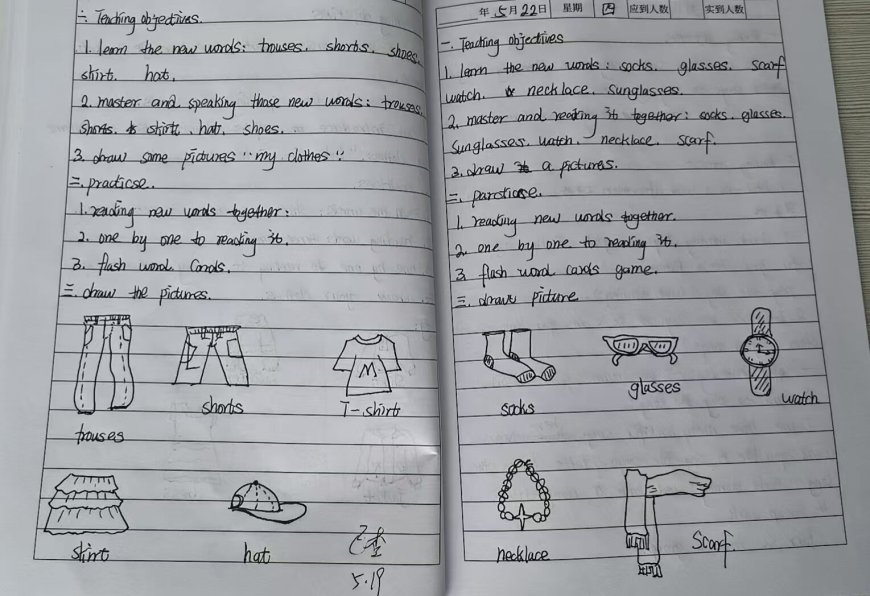 一. Teaching objectives.
1. learn the new words: trouses. shorts. shoes.
skirt. hat.
2. master and speaking those new words: trouses.
shorts. skirt. hat. shoes.
3. draw some pictures "my clothes".
二. practicse.
1. reading new words together.
2. one by one to reading it.
3. flash word cards.
三. draw the pictures.
trouses
shorts
M
T-shirt
skirt
hat
已查
5.19
年 5月 22日 星期 四 应到人数 实到人数
一. Teaching objectives
1. learn the new words: socks. glasses. scarf
watch. necklace. sunglasses.
2. master and reading it together: socks. glasses.
sunglasses. watch. necklace. scarf.
3. draw a pictures.
二. parcticse.
1. reading new words together.
2. one by one to reading it.
3. flash word cards game.
三. draw picture
socks
glasses
watch
necklace
Scarf.